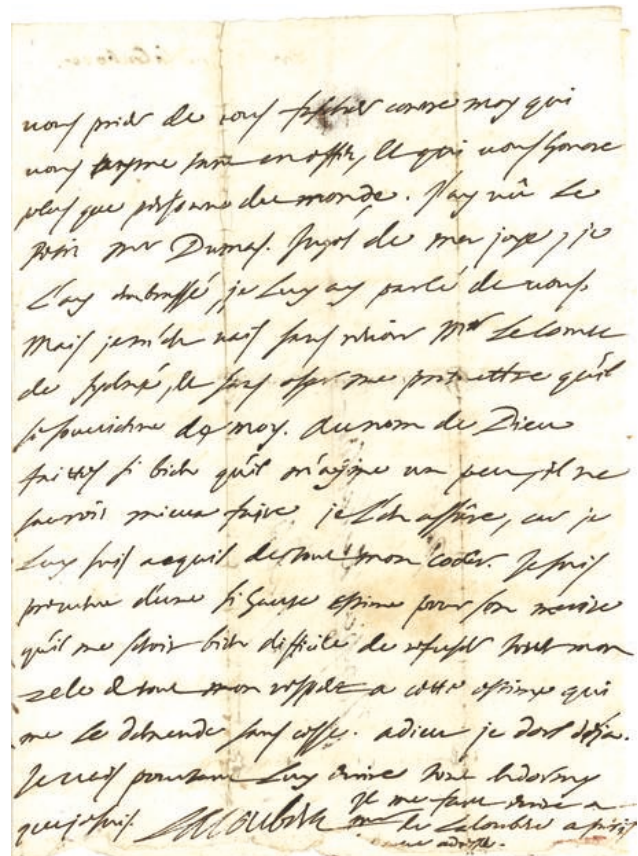 vous prier de vous fascher contre moy qui
vous ayme tant en effet, et qui vous honore
plus que personne du monde. J'ay vû le
petit Mr Dumas. Jugés de ma joye, je
l'ay embrassé, je luy ay parlé de vous.
Mais je m'en vais sans revoir Mr le Comte
de, et sans oser me promettre qu'il
se souvienne de moy. Au nom de Dieu
faittes si bien qu'il m'ayme un peu, il ne
sauroit mieux faire je l'en assûre, car je
luy suis acquis de tout mon coeur. Je suis
d'une si haute estime pour son merite
qu'il me seroit bien difficile de refuser tout mon
zele et tout mon respect a cette estime qui
me le demande sans cesse. adieu je dors deja.
Je vais pourtant luy écrire tout endormy
que je suis. LaLoubere Il me faut écrire a
de LaLoubere a